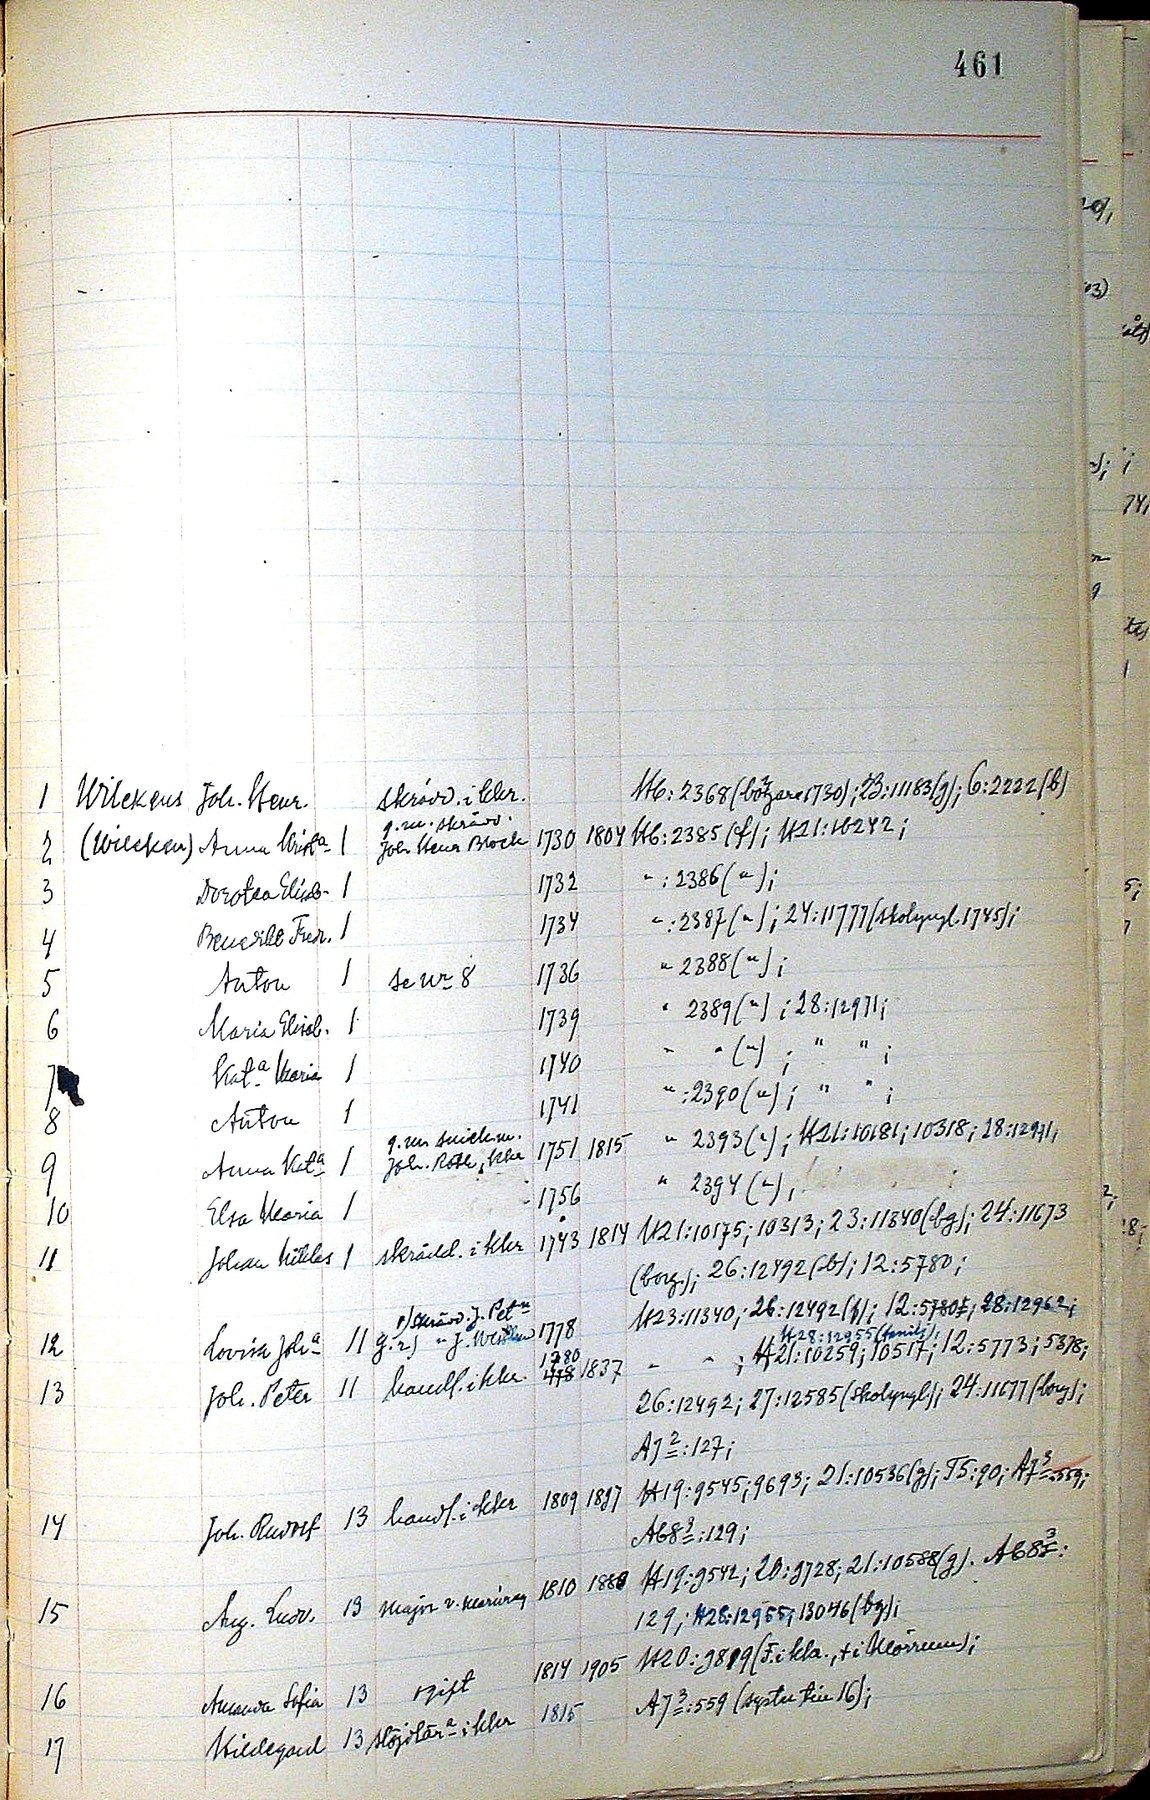 461
1 Wilckens Joh. Henr. skrädd. i Khr. H6:2368 (borgare 1730); 23:11183(g); 6:2222(b)
2 (Wilcken) Anna Krista 1 g.m. skrädd. Joh. Henr. Block 1730 1804 H6:2385(f); H21:10242;
3 Dorotea Elisab. 1 1732 " :2386(");
4 Benedikt Fredr. 1 1734 " :2387("); 24:11777(skolyngl. 1745);
5 Anton 1 se nr 8 1736 " 2388(");
6 Maria Elisab. 1 1739 " 2389("); 28:12971;
7 Kata Maria 1 1740 " " ("); " ";
8 Anton 1 1741 " :2390("); " ";
9 Anna Kata 1 g.m. snickm. Joh. Roth, Khr 1751 1815 " 2393("); H21:10181; 10318; 28:12971;
10 Elsa Maria 1 1756 " 2394(");
11 Johan Niklas 1 skrädd. i Khr 1743 1814 H21:10175; 10313; 23:11340(bg); 24:11673
(borg.); 26:12492(b); 12:5780;
12 Lovisa Joha 11 g. 1) skrädd. J. Petn 2) " J. 1778 H23:11340; 26:12492(f); 12:5780; 28:12962;
H28:12955(familj);
13 Joh. Peter 11 handl. i Khr. 1780 1837 " " ; H21:10259; 10517; 12:5773; 5378;
26:12492; 27:12585(skolyngl); 24:11677(borg);
AJ2:127;
14 Joh. Rudolf 13 handl. i Khr 1809 1887 H19:9545; 9693; 21:10536(g); T5:90; AJ3:559;
Ab83:129;
15 Aug. Ludv. 13 major v. 1810 1888 H19:9542; 20:9728; 21:10588(g). Ab83:
129; H28:12955; 13046(bg);
16 Amanda Sofia 13 ogift 1814 1905 H20:9819(F. i Kha., + i Mörrum);
17 Hildegard 13 slöjdlära i Khr 1815 AJ3:559 (syster till 16);